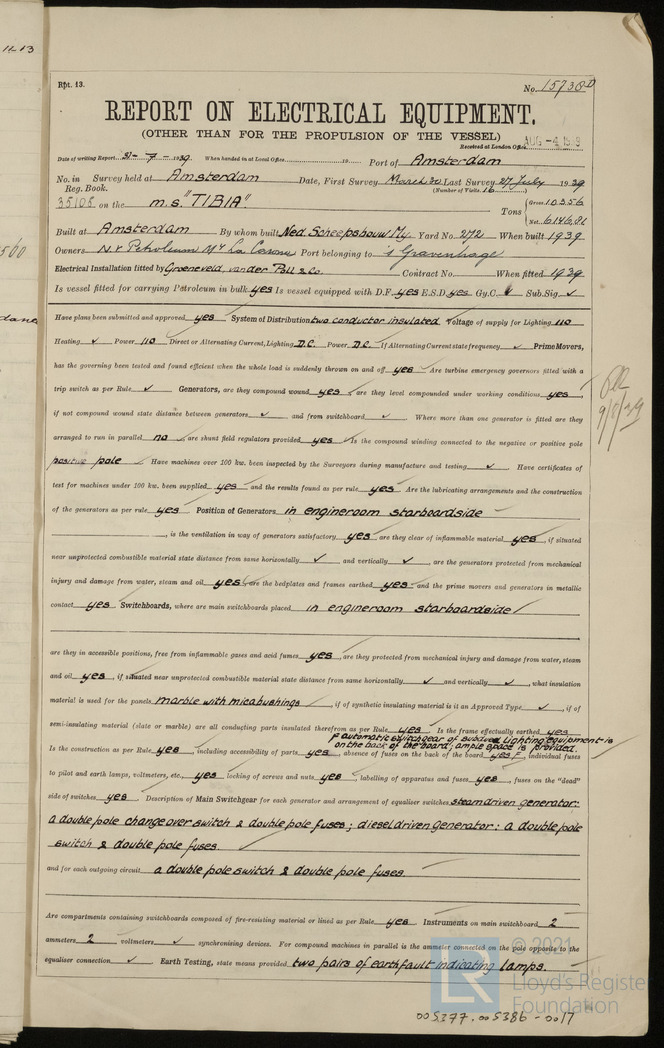 11-13
Rpt. 13.
No. 15738D
REPORT ON ELECTRICAL EQUIPMENT.
(OTHER THAN FOR THE PROPULSION OF THE VESSEL)
Received at London Office AUG -4 1939
Date of writing Report 31-7-1939. When handed in at Local Office 19 Port of Amsterdam
No. in Reg. Book. Survey held at Amsterdam Date, First Survey March 30 Last Survey 27 July 1939
(Number of Visits 16)
35108 on the m.s. "TIBIA" Tons Gross 10356 Net 6146,81
Built at Amsterdam By whom built Ned. Scheepsbouw My. Yard No. 272 When built 1939
Owners N.V. Petroleum My La Corona Port belonging to 's Gravenhage
Electrical Installation fitted by Groeneveld, van der Poll & Co. Contract No. When fitted 1939
Is vessel fitted for carrying Petroleum in bulk yes Is vessel equipped with D.F. yes E.S.D. yes Gy.C. ✓ Sub.Sig. ✓
Have plans been submitted and approved yes System of Distribution two conductor insulated Voltage of supply for Lighting 110
Heating ✓ Power 110 Direct or Alternating Current, Lighting D.C. Power D.C. If Alternating Current state frequency ✓ Prime Movers,
has the governing been tested and found efficient when the whole load is suddenly thrown on and off yes Are turbine emergency governors fitted with a
trip switch as per Rule ✓ Generators, are they compound wound yes, are they level compounded under working conditions yes,
if not compound wound state distance between generators ✓ and from switchboard ✓ Where more than one generator is fitted are they
arranged to run in parallel no, are shunt field regulators provided yes Is the compound winding connected to the negative or positive pole
positive pole Have machines over 100 kw. been inspected by the Surveyors during manufacture and testing ✓ Have certificates of
test for machines under 100 kw. been supplied yes and the results found as per rule yes Are the lubricating arrangements and the construction
of the generators as per rule yes Position of Generators in engineroom starboardside
, is the ventilation in way of generators satisfactory yes are they clear of inflammable material yes, if situated
near unprotected combustible material state distance from same horizontally ✓ and vertically ✓, are the generators protected from mechanical
injury and damage from water, steam and oil yes, are the bedplates and frames earthed yes and the prime movers and generators in metallic
contact yes Switchboards, where are main switchboards placed in engineroom starboardside
are they in accessible positions, free from inflammable gases and acid fumes yes, are they protected from mechanical injury and damage from water, steam
and oil yes, if situated near unprotected combustible material state distance from same horizontally ✓ and vertically ✓, what insulation
material is used for the panels marble with micabushings, if of synthetic insulating material is it an Approved Type ✓, if of
semi-insulating material (slate or marble) are all conducting parts insulated therefrom as per Rule yes Is the frame effectually earthed yes
F automatic switchgear of subdued Lighting equipment is
on the back of the board, ample space is provided.
Is the construction as Per Rule yes, including accessibility of parts yes, absence of fuses on the back of the board yes F, individual fuses
to pilot and earth lamps, voltmeters, etc., yes locking of screws and nuts yes, labelling of apparatus and fuses yes, fuses on the "dead"
side of switches yes Description of Main Switchgear for each generator and arrangement of equaliser switches steamdriven generator:
a double pole change over switch & double pole fuses; diesel driven generator: a double pole
switch & double pole fuses.
and for each outgoing circuit a double pole switch & double pole fuses
Are compartments containing switchboards composed of fire-resisting material or lined as per Rule yes Instruments on main switchboard 2
ammeters 2 voltmeters ✓ synchronising devices. For compound machines in parallel is the ammeter connected on the pole opposite to the
equaliser connection ✓ Earth Testing, state means provided two pairs of earthfault indicating lamps.
© 2021
LR Lloyd's Register
Foundation
005377.005386-0017